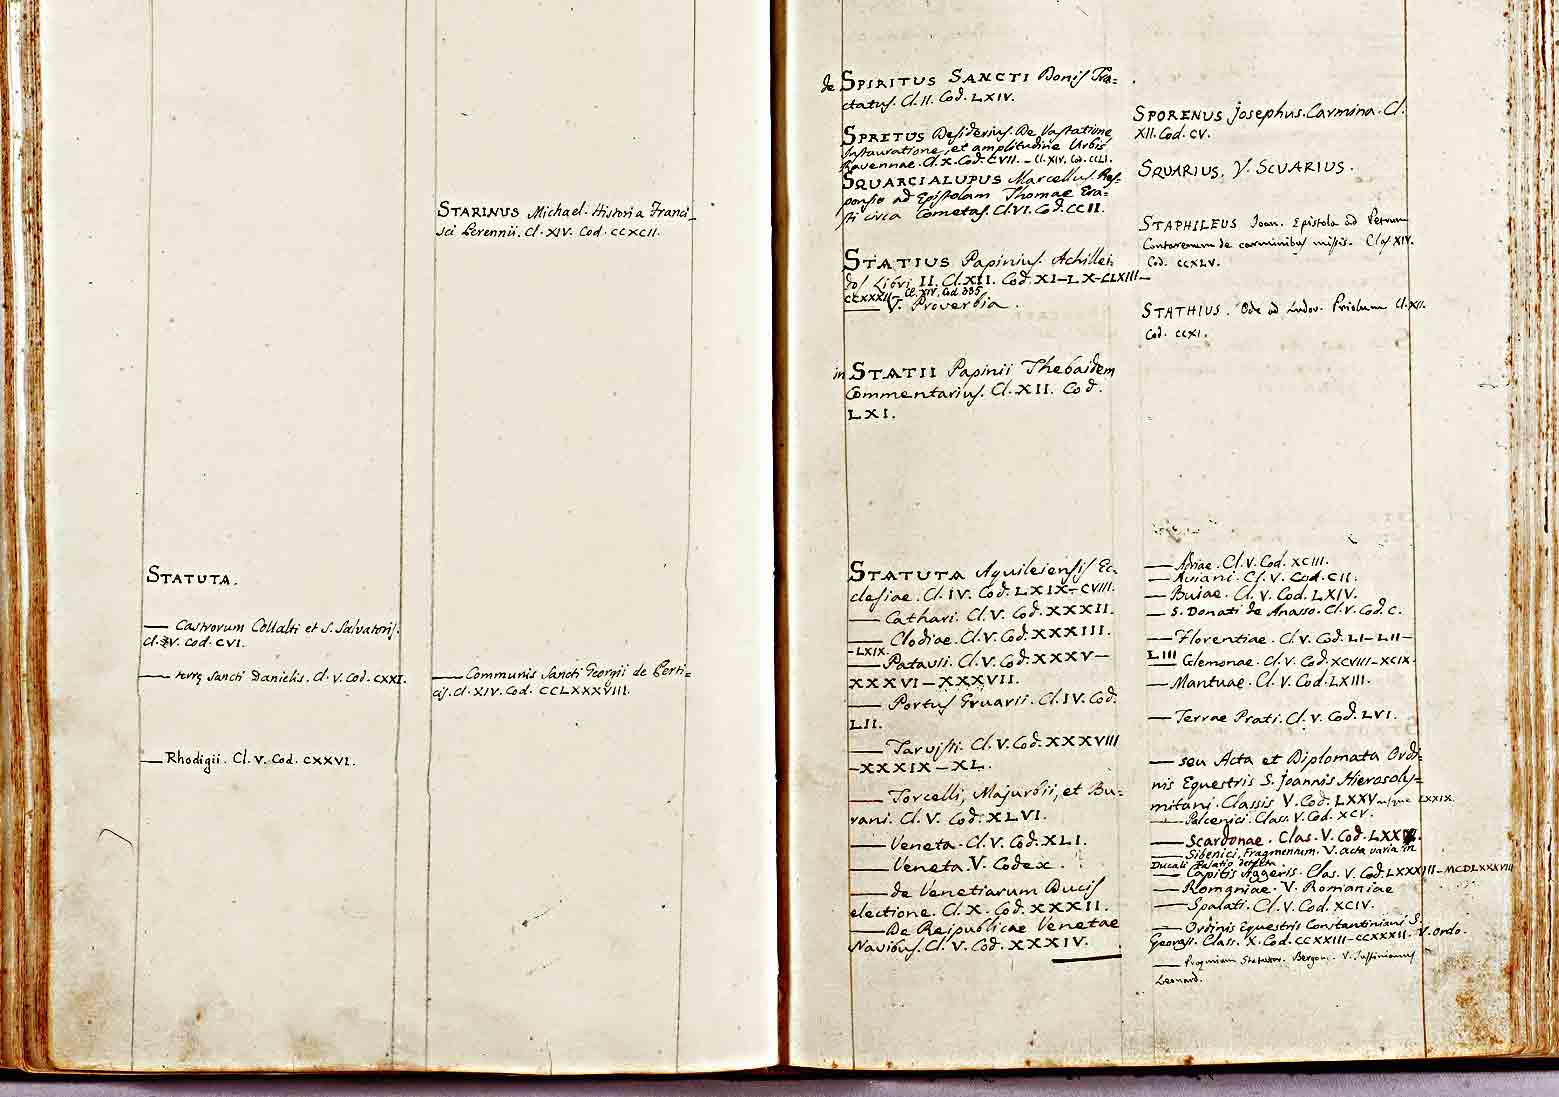 STATUTA.
— Castrorum Collalti et S. Salvatoris.
Cl. V. Cod. CVI.
— terrę Sancti Danielis. Cl. V. Cod. CXXI.
— Rhodigii. Cl. V. Cod. CXXVI.
STARINUS Michael. Historia Franci-
sci Lerennii. Cl. XIV. Cod. CCXCII.
— Communis Sancti Georgii de Perti=
cis. Cl. XIV. Cod. CCLXXXVIII.
de SPIRITUS SANCTI Donis Tra=
ctatus. Cl. II. Cod. LXIV.
SPRETUS Desiderius. De Vastatione,
Instauratione, et amplitudine Urbis
Ravennae. Cl. X. Cod. CVII. - Cl. XIV. Cod. CCLI.
SQUARCIALUPUS Marcellus. Res-
ponsio ad Epistolam Thomae Era-
sti circa Cometas. Cl. VI. Cod. CCII.
STATIUS Papinius. Achillei
dos Libri II. Cl. XII. Cod. XI-LX-CLXIII-
CCXXXII- Cl. XIV. Cod. 335
— V. Proverbia.
in STATII Papinii Thebaidem
Commentarius. Cl. XII. Cod.
LXI.
STATUTA Aquileiensis Ec-
clesiae. Cl. IV. Cod. LXIX-CVIII.
— Cathari. Cl. V. Cod. XXXII.
— Clodiae. Cl. V. Cod. XXXIII.
-LXIX.
— Patavii. Cl. V. Cod. XXXV-
XXXVI-XXXVII.
— Portus Gruarii. Cl. IV. Cod.
LII.
— Tarvisii. Cl. V. Cod. XXXVIII
-XXXIX-XL.
— Torcelli, Majurbii, et Bu=
rani. Cl. V. Cod. XLVI.
— Veneta. Cl. V. Cod. XLI.
— Veneta. V. Codex.
— de Venetiarum Ducis
electione. Cl. X. Cod. XXXII.
— De Reipublicae Venetae
Navibus. Cl. V. Cod. XXXIV.
SPORENUS Josephus. Carmina. Cl.
XII. Cod. CV.
SQUARIUS. V. SCUARIUS.
STAPHILEUS Joan. Epistola ad Petrum
Contarenum de carminibus missis. Clas XIV.
Cod. CCXLV.
STATHIUS. Ode ad Ludov. Priolum Cl. XII.
Cod. CCXI.
— Adriae. Cl. V. Cod. XCIII.
— Aviani. Cl. V. Cod. CII.
— Bujae. Cl. V. Cod. LXIV.
— S. Donati de Anasso. Cl. V. Cod. C.
— Florentiae. Cl. V. Cod. LI-LII-
LIII
— Glemonae. Cl. V. Cod. XCVIII-XCIX.
— Mantuae. Cl. V. Cod. LXIII.
— Terrae Prati. Cl. V. Cod. LVI.
— seu Acta et Diplomata Ordi=
nis Equestris S. Joannis Hierosoly=
mitani. Classis V. Cod. LXXV usque LXXIX.
— Polcenici. Class. V. Cod. XCV.
— Scardonae. Clas. V. Cod.
— Sibenici, Fragmentum. V. acta varia in
Ducali Palatio detenta.
— Capitis Aggeris. Clas. V. Cod. LXXXIII-MCDLXXXVIII
— Romaniae. V. Romaniae
— Spalati. Cl. V. Cod. XCIV.
— Ordinis Equestris Constantiniani S.
Georgii. Class. X. Cod. CCXXIII-CCXXXII. V. Ordo.
— Statutor. Bergom. V. Justinianus
Leonard.